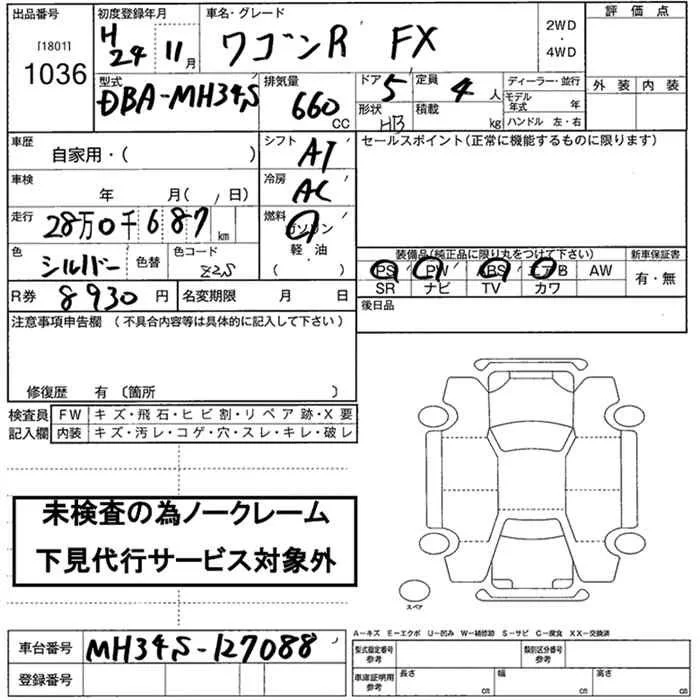 出品番号 初度登録年月 車名・グレード 2WD・4WD 評価点
[1801] 1036 H24 11月 ワゴンR FX
型式 排気量 ドア 5 定員 4人 ディーラー・並行 外装 内装
DBA-MH34S 660CC 形状 HB 積載 kg モデル年式 年
ハンドル 左・右
車歴 自家用・( ) シフト AT セールスポイント(正常に機能するものに限ります)
車検 年 月( 日) 冷房 AC
走行 28万0千687km 燃料 ガソリン・軽油
色 シルバー 色替 色コード Z2S ( )
装備品(純正品に限り丸をつけて下さい) 新車保証書
PS PW ABS エアB AW 有・無
SR ナビ TV カワ
R券 8930円 名変期限 月 日 後日品
注意事項申告欄(不具合内容等は具体的に記入して下さい)
修復歴 有〔箇所 〕
検査員 FW キズ・飛石・ヒビ割・リペア跡・X要
記入欄 内装 キズ・汚レ・コゲ・穴・スレ・キレ・破レ
未検査の為ノークレーム
下見代行サービス対象外
スペア
A－キズ E－エクボ U－凹み W－補修跡 S－サビ C－腐食 XX－交換済
車台番号 MH34S-127088 型式指定番号 参考 類別区分番号 参考
登録番号 車庫証明用 参考 長さ cm 幅 cm 高さ cm